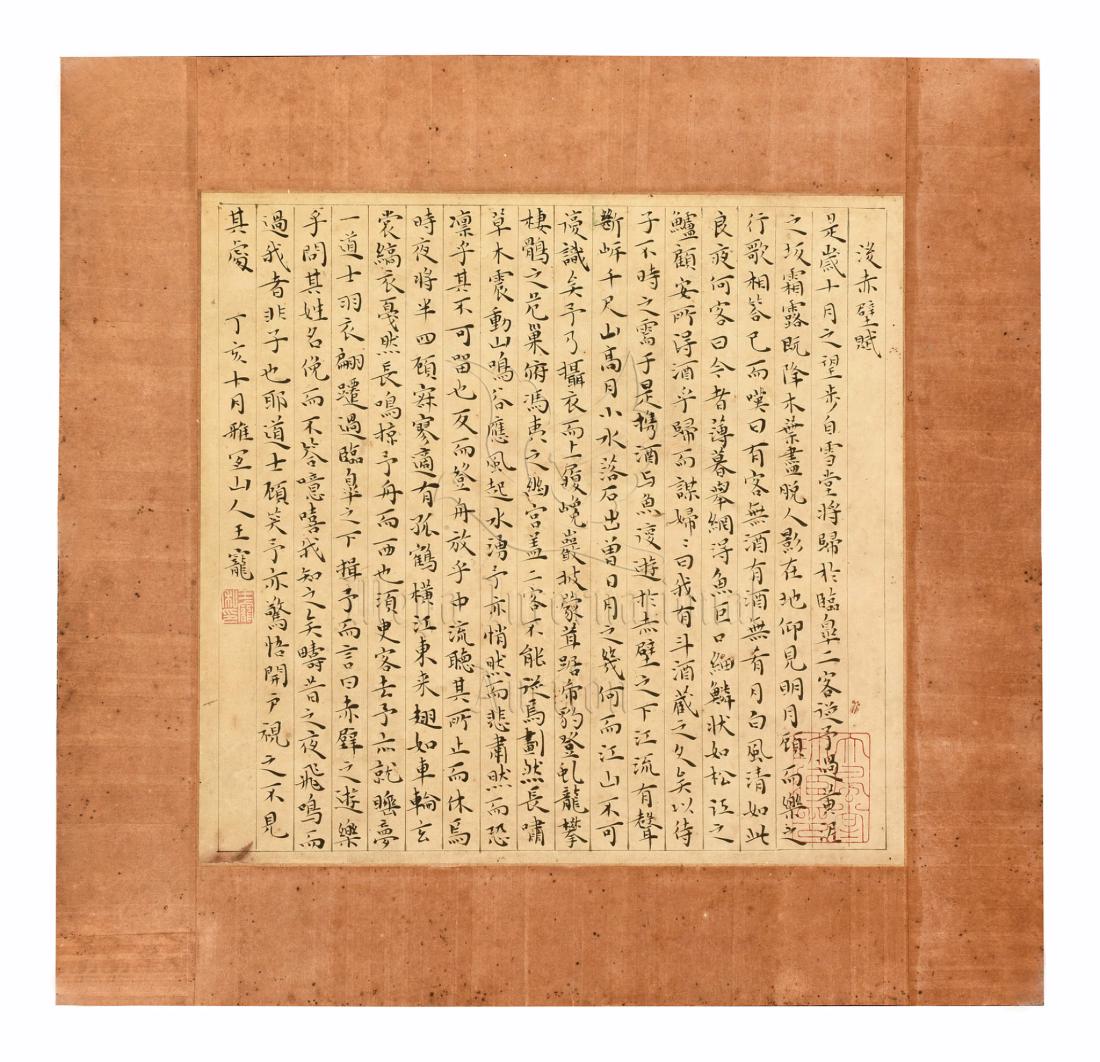 後赤壁賦
是歲十月之望步自雪堂將歸於臨皐二客從予過黃泥
之坂霜露既降木葉盡脫人影在地仰見明月顧而樂之
行歌相答已而嘆曰有客無酒有酒無肴月白風清如此
良夜何客曰今者薄暮舉網得魚巨口細鱗狀如松江之
鱸顧安所得酒乎歸而謀婦〻曰我有斗酒藏之久矣以待
子不時之需于是携酒与魚復遊於赤壁之下江流有聲
斷岸千尺山高月小水落石出曾日月之幾何而江山不可
復識矣予乃攝衣而上履巉巖披蒙茸踞虎豹登虬龍攀
棲鶻之危巢俯馮夷之幽宮盖二客不能從焉劃然長嘯
草木震動山鳴谷應風起水湧予亦悄然而悲肅然而恐
凛乎其不可留也反而登舟放乎中流聽其所止而休焉
時夜將半四顧寂寥適有孤鶴橫江東来翅如車輪玄
裳縞衣戛然長鳴掠予舟而西也須臾客去予亦就睡夢
一道士羽衣翩躚過臨皐之下揖予而言曰赤壁之遊樂
乎問其姓名俛而不答噫嘻我知之矣疇昔之夜飛鳴而
過我者非子也耶道士顧笑予亦驚悟開戶視之不見
其處 丁亥十月雅宜山人王寵